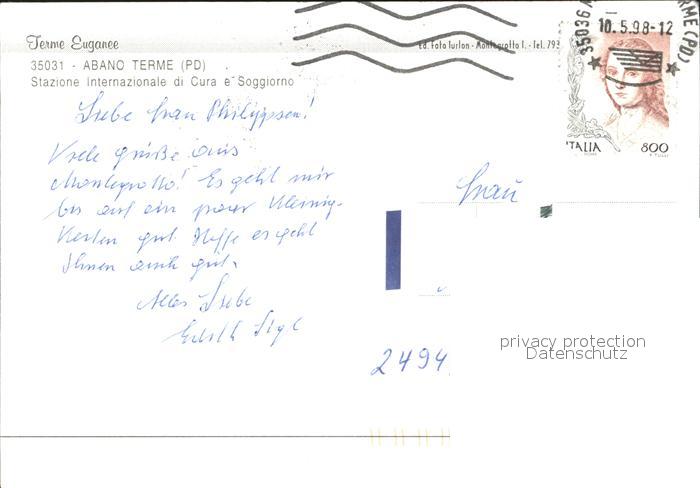 Terme Euganee
35031 - ABANO TERME (PD)
Stazione Internazionale di Cura e Soggiorno
Ed. Foto Turlon - Montegrotto T. - Tel. 793
35036 M TERME (PD)
10.5.98-12
ITALIA 800
ROMA
Liebe Frau Philippsen!
Viele Grüße aus
Montegrotto! Es geht mir
bis auf ein paar Kleinig-
keiten gut. Hoffe es geht
Ihnen auch gut.
Alles Liebe
Edith
Frau
2494
privacy protection
Datenschutz